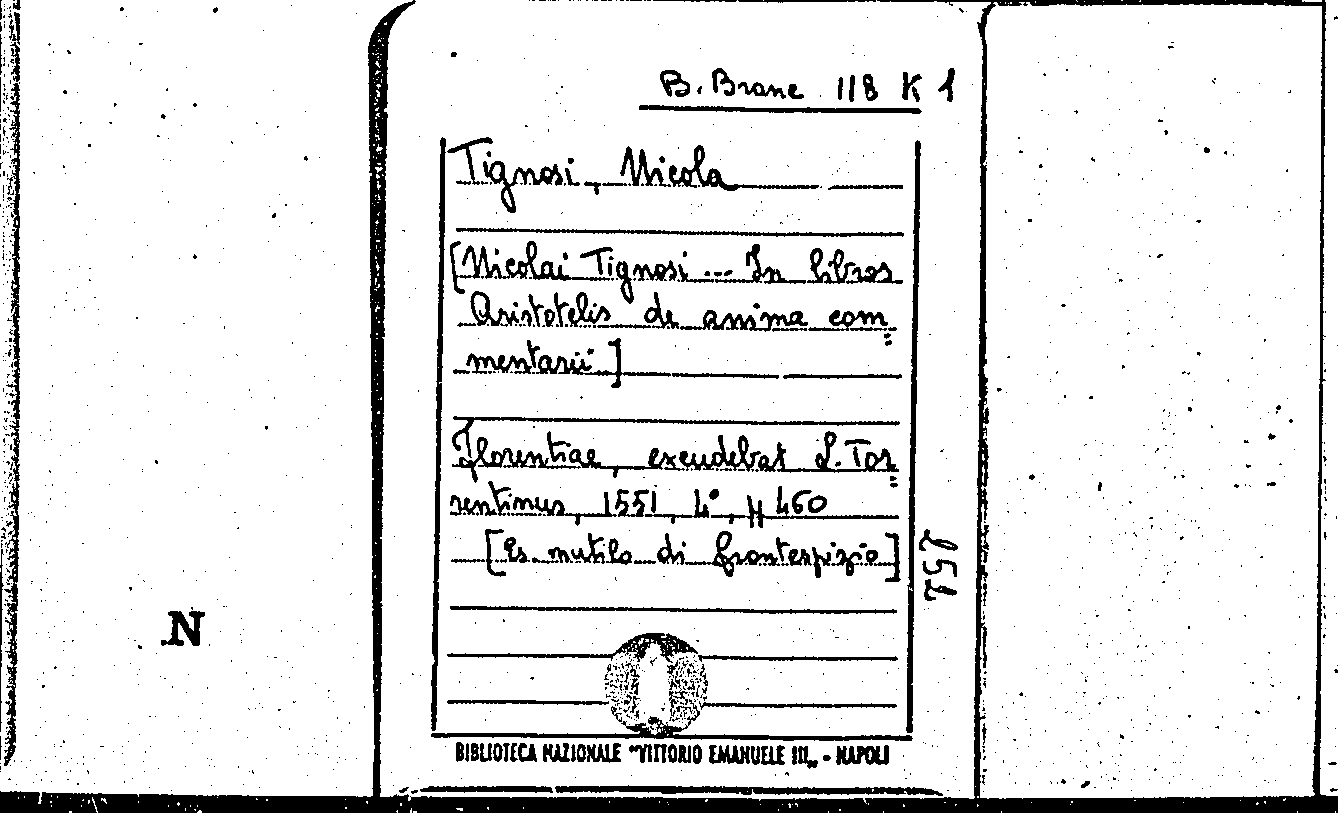 B. Branc 118 K 1
Tignosi, Nicola
[Nicolai Tignosi ... In libros
Aristotelis de anima com
mentarii]
Florentiae, excudebat L. Tor
rentinus, 1551, 4°, pp 460
[Es. mutilo di frontespizio]
252
N
BIBLIOTECA NAZIONALE "VITTORIO EMANUELE III„ - NAPOLI